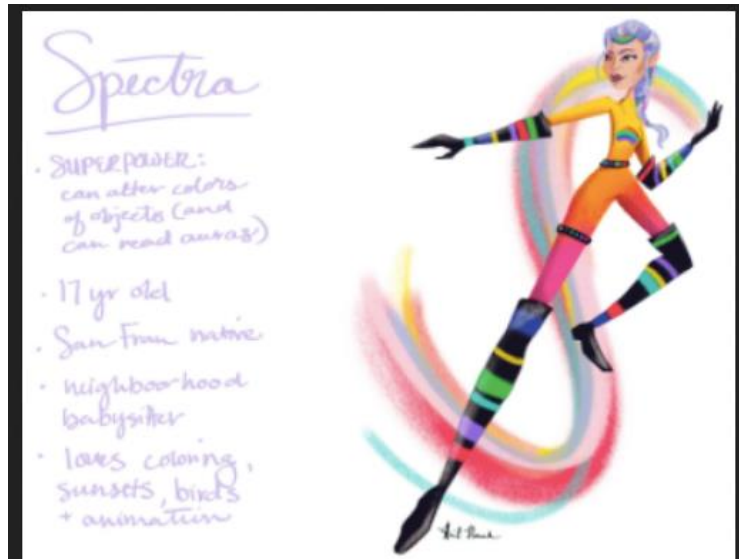 Spectra
• SUPERPOWER:
can alter colors
of objects (and
can read auras)
• 17 yr old
• San Fran native
• neighboorhood
babysitter
• loves coloring,
sunsets, birds
+ animation